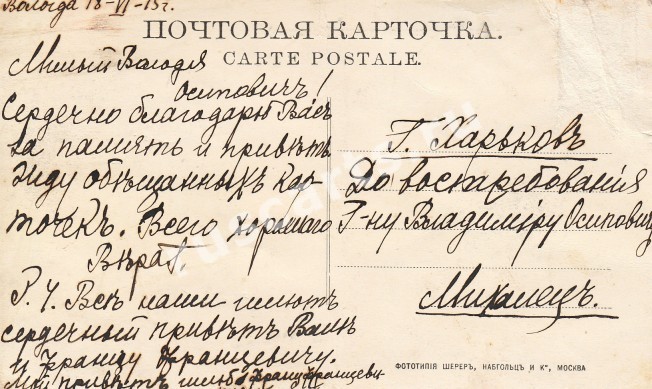 Вологда 18-VI-13г.
ПОЧТОВАЯ КАРТОЧКА.
CARTE POSTALE.
Милый Володя
Осипович!
Сердечно благодарю Васъ
за память и привѣтъ
Жду обѣщанныхъ кар-
точекъ. Всего хорошаго
Вѣра
P. Ч. Всѣ наши шлютъ
сердечный привѣтъ Вамъ
и Францу Францевичу.
Мой привѣтъ
Г. Харьковъ
До востребованія
Г-ну Владиміру Осиповичу
ФОТОТИПІЯ ШЕРЕРЪ, НАБГОЛЬЦЪ И Кº, МОСКВА